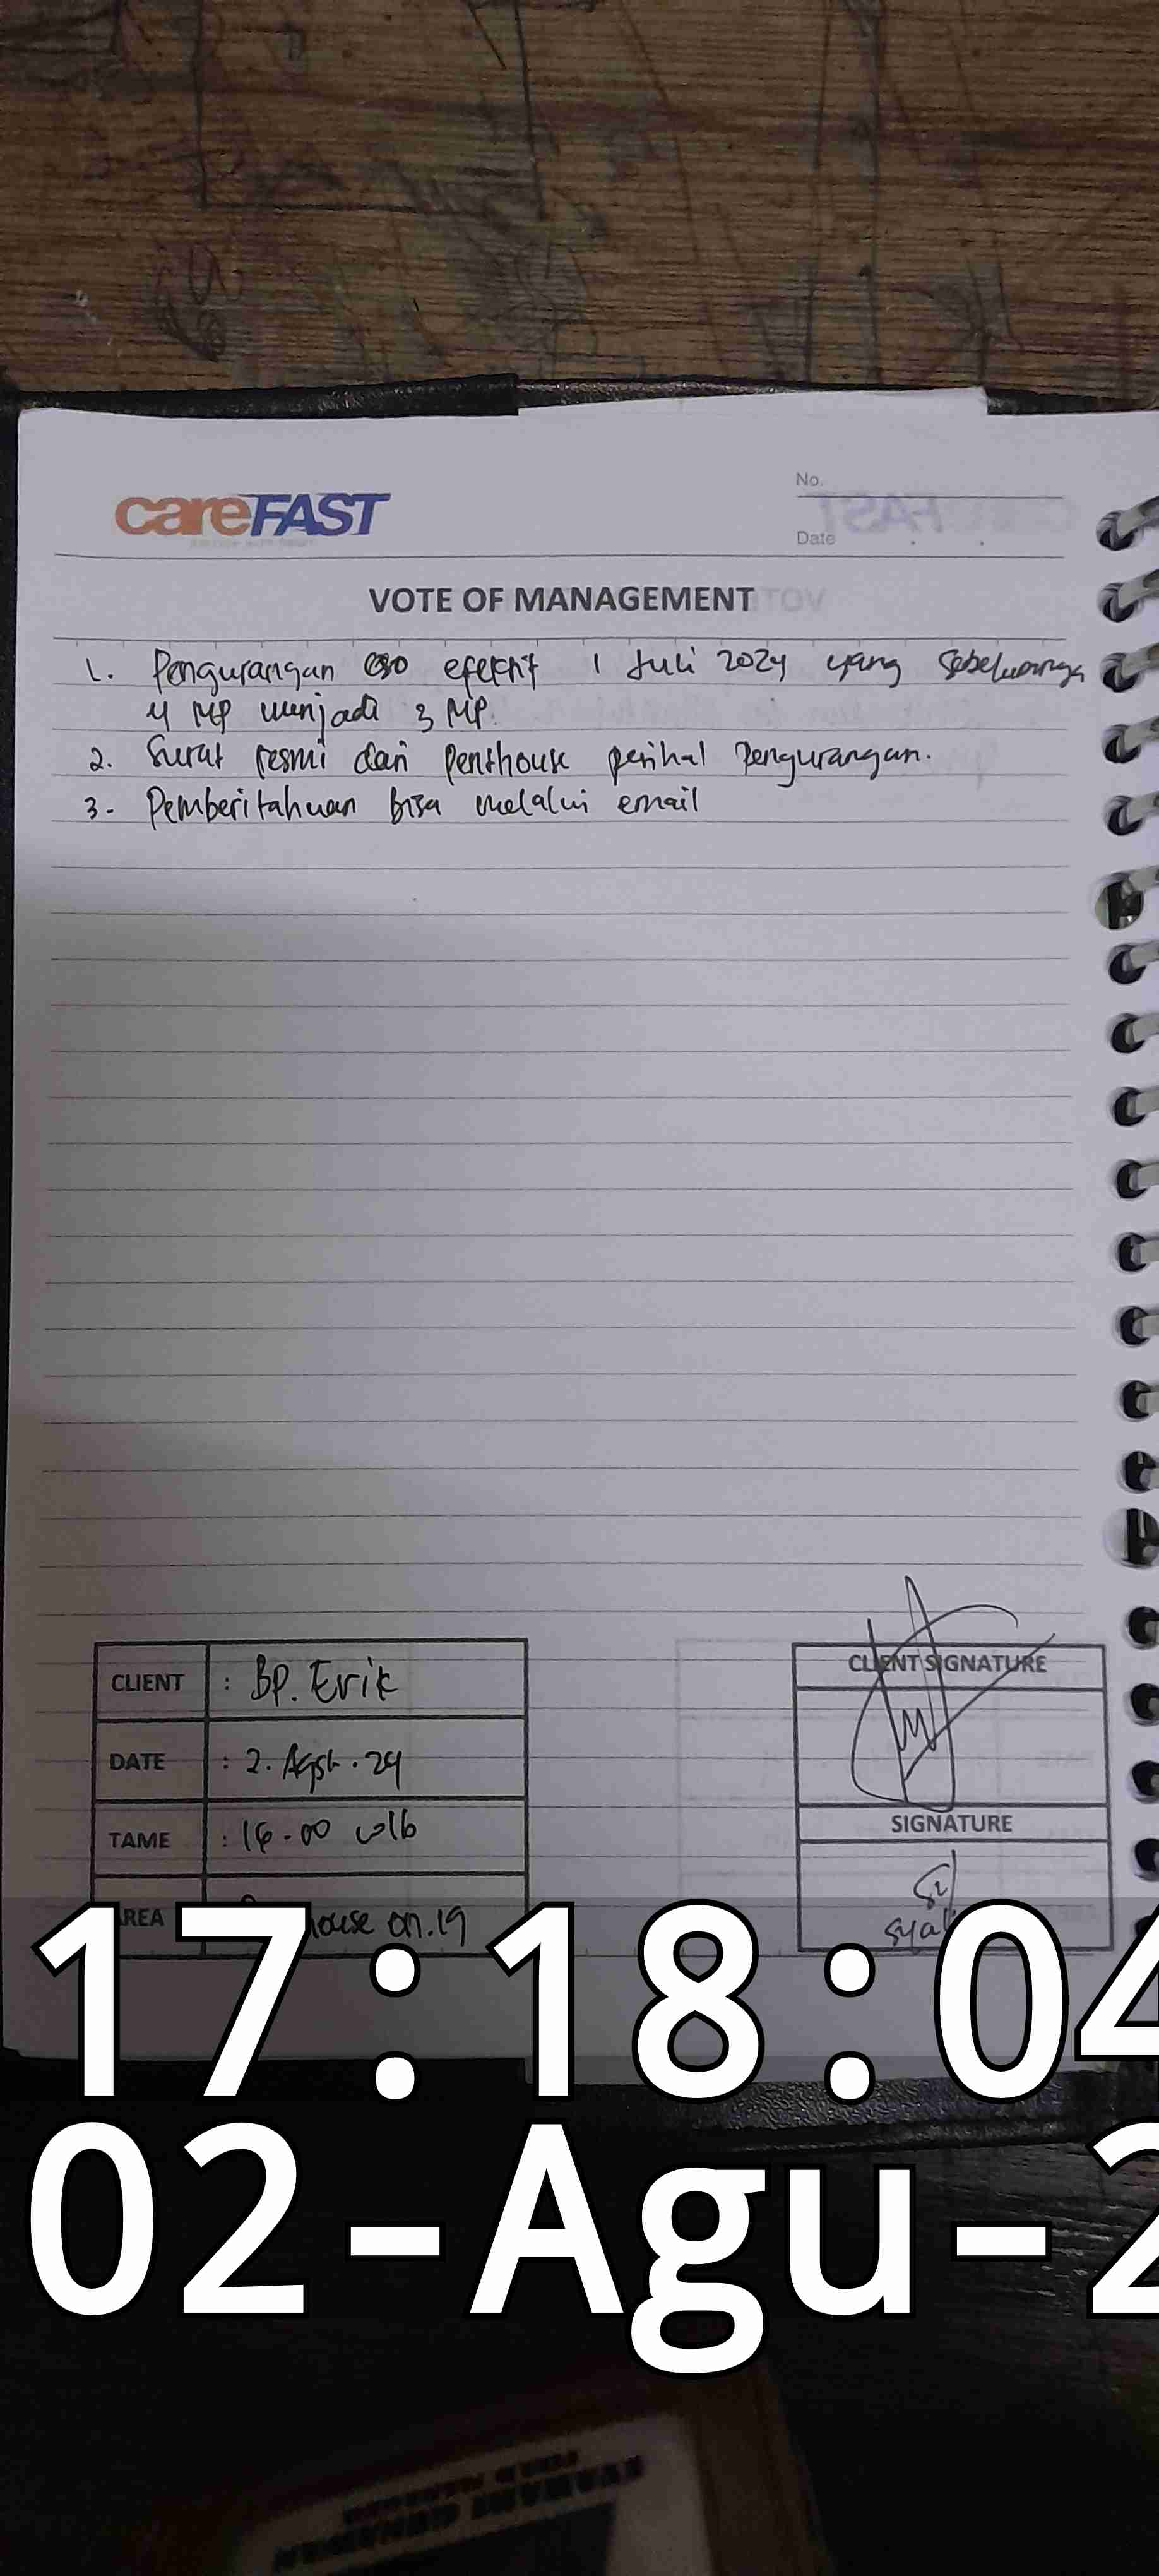 careFAST
No.
Date
VOTE OF MANAGEMENT
1. Pengurangan CSO efektif 1 Juli 2024 yang sebelumnya
4 MP menjadi 3 MP.
2. Surat resmi dari Penthouse perihal Pengurangan.
3. Pemberitahuan bisa melalui email
CLIENT : BP. Erik
CLIENT SIGNATURE
DATE : 2. Agst. 24
TAME : 16.00 WIB
SIGNATURE
house on.19
17:18:04
02-Agu-2